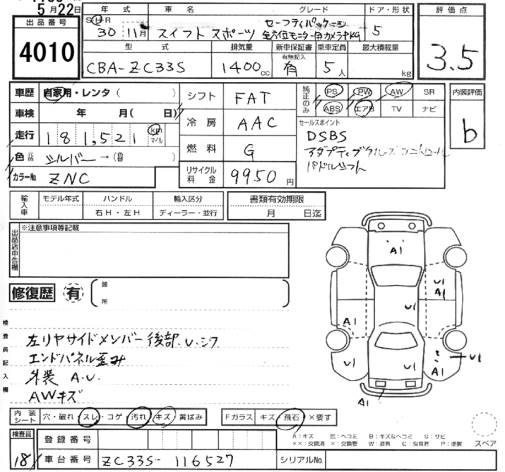 5月22日
出品番号
4010
年式 車名 グレード ドア・形状 評価点
30 11月 スイフトスポーツ セーフティパッケージ 5
全方位モニター用カメラPKG
3.5
型式 排気量 新車保証書 乗車定員 最大積載量
有無記入
CBA-ZC33S 1400cc 有 5人 kg
車歴 自家用・レンタ( )
シフト FAT
純正のみ PS PW AW SR
ABS エアB TV ナビ
内装評価
b
車検 年 月( 日)
走行 181,521 km マイル
冷房 AAC
セールスポイント
DSBS
アダプティブクルーズコントロール
パドルシフト
色 シルバー→( )
燃料 G
カラーNo ZNC
リサイクル料金 9950円
輸入車 モデル年式 ハンドル 輸入区分 書類有効期限
右H・左H ディーラー・並行 月 日迄
出品店申告欄
※注意事項等記載
修復歴 有 箇所
検査員記入欄
左リヤサイドメンバー後部.U.シワ
エンドパネル歪み
外装 A.U.
AWキズ
A1
U1
A1
U1
U1
A1
U1
A1
A1
内装シート 穴・破れ スレ・コゲ 汚れ キズ 黄ばみ Fガラス キズ 飛石 ×要す
A:キズ E:エクボ B:キズ&ヘコミ S:サビ
スペア
検査員
18
登録番号
車台番号 ZC33S-116527 シリアルNo